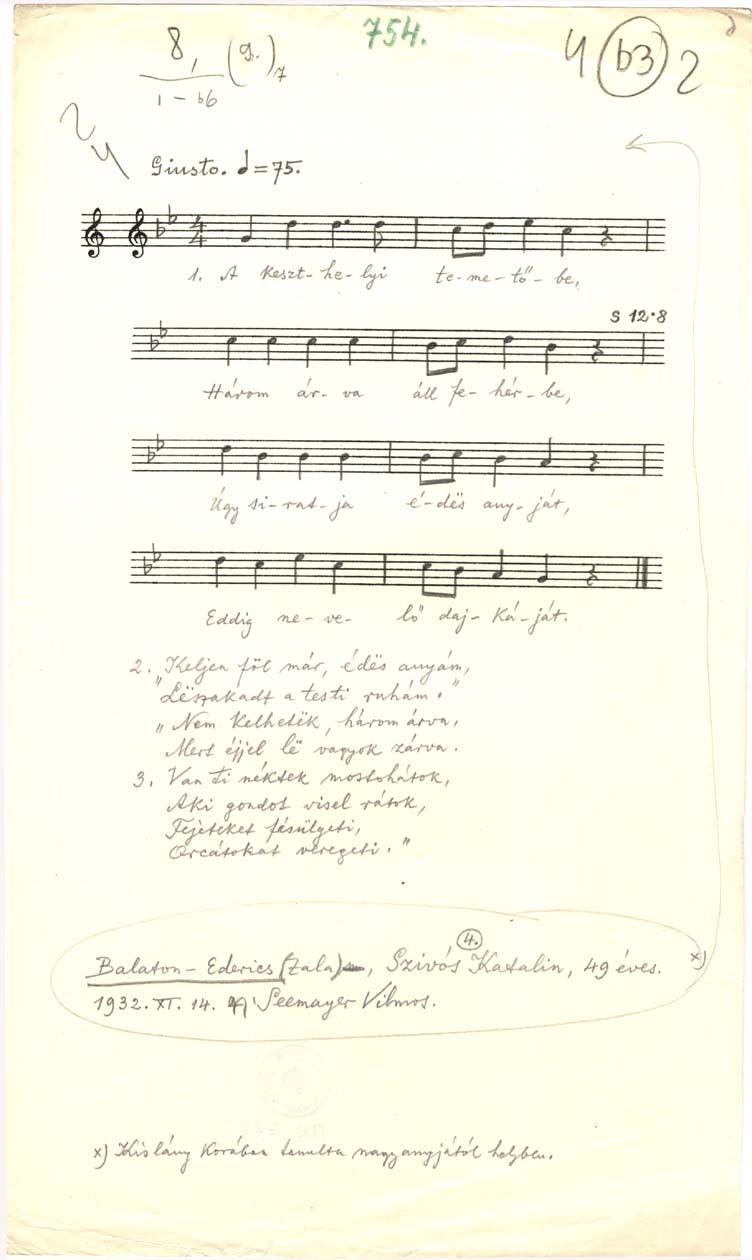 754.
8, (9.)7
1 – b6
4 b3 2
2
4
Giusto. = 75.
4
4
1. A Keszt- he- lyi te- me- tő- be,
S 12·8
Három ár- va áll fe- hér- be,
Úgy si- rat- ja é- dës any- ját,
Eddig ne- ve- lő daj- ká- ját.
2. „Keljen föl már, édës anyám,
Lëszakadt a testi ruhám."
„Nem kelhetëk, három árva,
Mert éjjel lë vagyok zárva.
3. Van ti néktek mostohátok,
Aki gondot visel rátok,
Fejeteket fésülgeti,
Orcátokat veregeti."
4.
Balaton – Ederics (Zala), Szivós Katalin, 49 éves. x)
1932. XI. 14. Seemayer Vilmos.
x) Kislány korában tanulta nagyanyjától helyben.